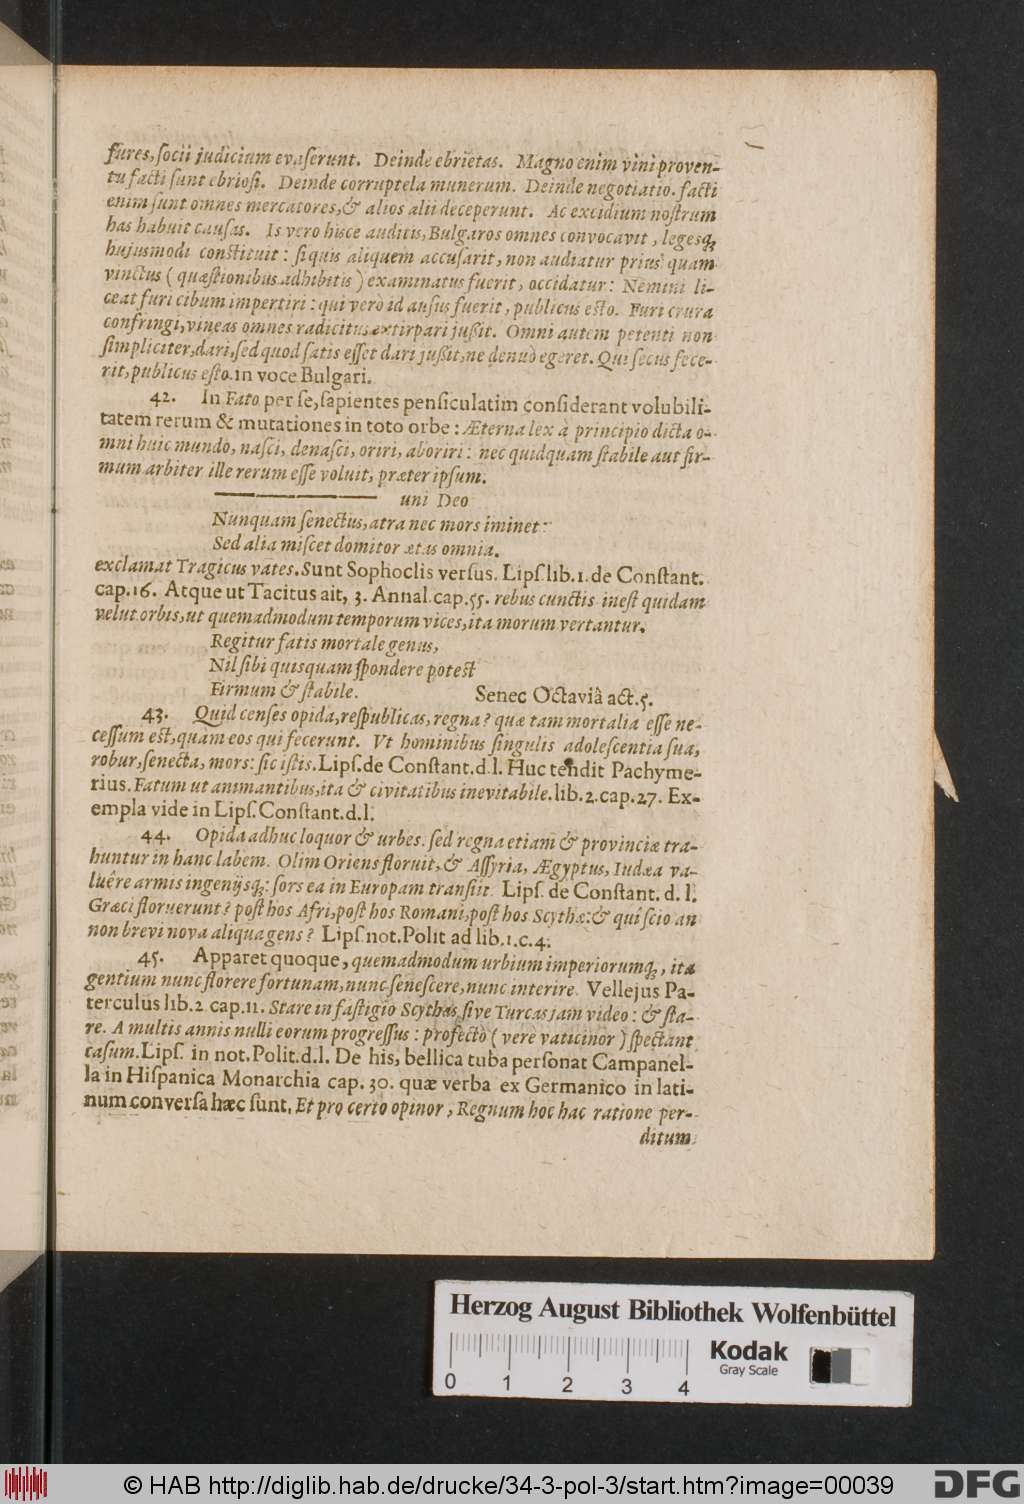 fures, ſocii judicium evaſerunt. Deinde ebrietas. Magno enim vini proven-
tu facti ſunt ebrioſi. Deinde corruptela munerum. Deinde negotiatio. facti
enim ſunt omnes mercatores, & alios alii deceperunt. Ac excidium noſtrum
has habuit cauſas. Is vero hisce auditis, Bulgaros omnes convocavit, legesq́;
hujusmodi conſtituit: ſiquis aliquem accuſarit, non audiatur prius quam
vinctus (quæſtionibus adhibitis) examinatus fuerit, occidatur: Nemini li-
ceat furi cibum impertiri: qui verò id auſus fuerit, publicus eſto. Furi crura
confringi, vineas omnes radicitus extirpari juſſit. Omni autem petenti non
ſimpliciter, dari, ſed quod ſatis eſſet dari juſſit, ne denuò egeret. Qui ſecus fece-
rit, publicus eſto. in voce Bulgari.
42. In Fato per ſe, ſapientes penſiculatim conſiderant volubili-
tatem rerum & mutationes in toto orbe: Æterna lex à principio dicta o-
mni huic mundo, naſci, denaſci, oriri, aboriri: nec quidquam ſtabile aut fir-
mum arbiter ille rerum eſſe voluit, præter ipſum.
uni Deo
Nunquam ſenectus, atra nec mors iminet:
Sed alia miſcet domitor ætas omnia.
exclamat Tragicus vates. Sunt Sophoclis verſus. Lipſ. lib. 1. de Conſtant.
cap. 16. Atque ut Tacitus ait, 3. Annal. cap. 55. rebus cunctis ineſt quidam
velut orbis, ut quemadmodum temporum vices, ita morum vertantur.
Regitur fatis mortale genus,
Nil ſibi quisquam ſpondere poteſt
Firmum & ſtabile. Senec Octaviâ act. 5.
43. Quid cenſes opida, reſpublicas, regna? quæ tam mortalia eſſe ne-
ceſſum eſt, quam eos qui fecerunt. Vt hominibus ſingulis adoleſcentia ſua,
robur, ſenecta, mors: ſic iſtis. Lipſ. de Conſtant. d. l. Huc tendit Pachyme-
rius. Fatum ut animantibus, ita & civitatibus inevitabile. lib. 2. cap. 27. Ex-
empla vide in Lipſ. Conſtant. d. l.
44. Opida adhuc loquor & urbes. ſed regna etiam & provinciæ tra-
huntur in hanc labem. Olim Oriens floruit, & Aſſyria, Ægyptus, Iudæa va-
luêre armis ingenijsq́;: ſors ea in Europam tranſiit. Lipſ. de Conſtant. d. l.
Græci floruerunt? poſt hos Afri, poſt hos Romani, poſt hos Scythæ: & qui ſcio an
non brevi nova aliqua gens? Lipſ. not. Polit ad lib. 1. c. 4.
45. Apparet quoque, quemadmodum urbium imperiorumq́;, ita
gentium nunc florere fortunam, nunc ſeneſcere, nunc interire. Vellejus Pa-
terculus lib. 2 cap. 11. Stare in faſtigio Scythas ſive Turcas jam video: & ſta-
re. A multis annis nulli eorum progreſſus: profectò (verè vaticinor) ſpectant
caſum. Lipſ. in not. Polit. d. l. De his, bellica tuba perſonat Campanel-
la in Hiſpanica Monarchia cap. 30. quæ verba ex Germanico in lati-
num converſa hæc ſunt, Et pro certo opinor, Regnum hoc hac ratione per-
ditum
Herzog August Bibliothek Wolfenbüttel
0 1 2 3 4
Kodak
Gray Scale
© HAB http://diglib.hab.de/drucke/34-3-pol-3/start.htm?image=00039
DFG